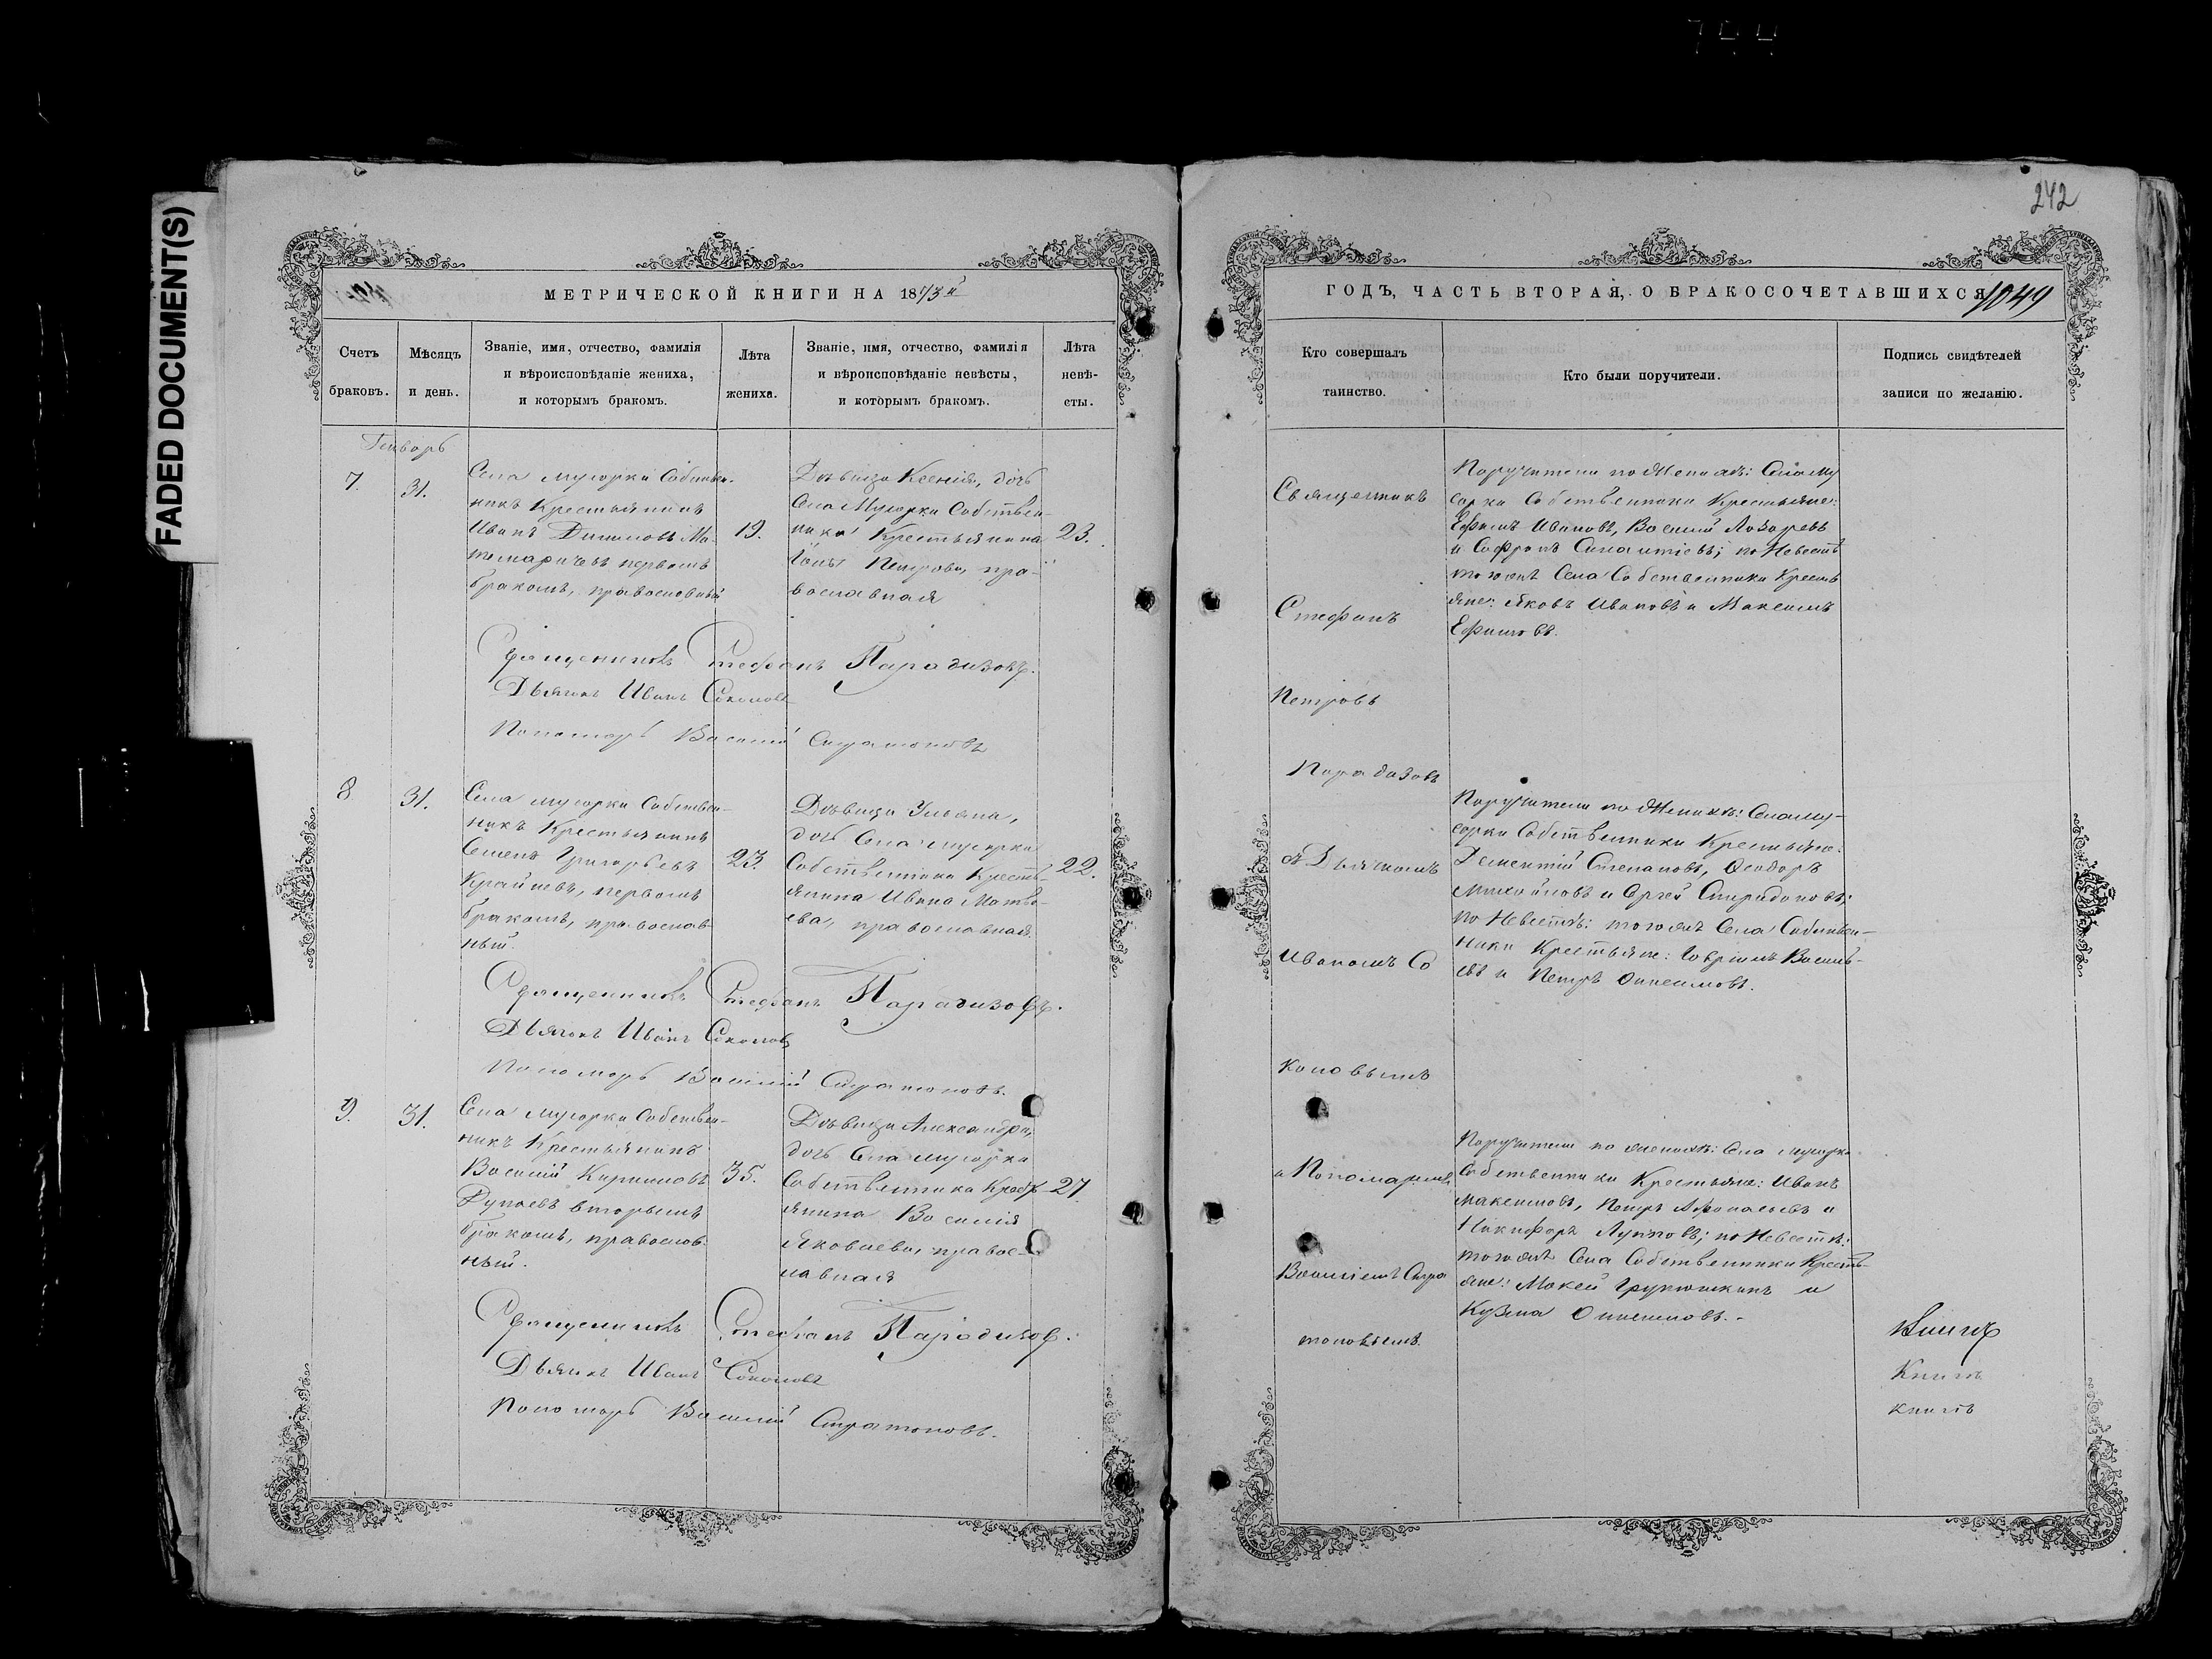 744
FADED DOCUMENT(S)
242
МЕТРИЧЕСКОЙ КНИГИ НА 1873й
Счетъ браковъ.
Мѣсяцъ и день.
Званіе, имя, отчество, фамилія
и вѣроисповѣданіе жениха,
и которымъ бракомъ.
Лѣта жениха.
Званіе, имя, отчество, фамилія
и вѣроисповѣданіе невѣсты,
и которымъ бракомъ.
Лѣта невѣ-
сты.
Генварь
7.
31.
Села Мусорки Собствен-
никъ Крестьянинъ
Иванъ
первымъ
бракомъ, православный
19.
Дѣвица Ксенія, дочь
Села Мусорки Собствен-
ника Крестьянина
Іоны Петрова, пра-
вославная
23.
Священникъ Стефанъ Парадизовъ.
Дьячокъ Иванъ Соколовъ
Пономарь Василій Стратоновъ
8
31.
Села Мусорки Собствен-
никъ Крестьянинъ
Семенъ Григорьевъ
Крайневъ, первымъ
бракомъ, православ-
ный.
23
Дѣвица Ульяна,
дочь Села Мусорки
Собственника Кресть-
янина Ивана Матвѣ-
ева, православная.
22.
Священникъ Стефанъ Парадизовъ.
Дьячокъ Иванъ Соколовъ
Пономарь Василій Стратоновъ.
9.
31.
Села Мусорки Собствен-
никъ Крестьянинъ
Василій Кириловъ
Дунаевъ вторымъ
бракомъ, православ-
ный.
35.
Дѣвица Александра,
дочь Села Мусорки
Собственника Крест-
янина Василія
Яковлева, правос-
лавная
27
Священникъ Стефанъ Парадизовъ.
Дьячокъ Иванъ Соколовъ
Пономарь Василій Стратоновъ.
ГОДЪ, ЧАСТЬ ВТОРАЯ, О БРАКОСОЧЕТАВШИХСЯ 1049
Кто совершалъ
таинство.
Кто были поручители.
Подпись свидѣтелей
записи по желанію.
Священникъ
Стефанъ
Петровъ
Парадизовъ
съ Дьячкомъ
Иваномъ Со
коловымъ
и Пономаремъ
Василіемъ Стра
тоновымъ.
Поручители по Женихѣ: Села Му
сорки Собственники Крестьяне:
Ефимъ Ивановъ, Василій Лазаревъ
и Софронъ; по Невѣстѣ
тогоже Села Собственники Кресть
яне: Яковъ Ивановъ и Максимъ
Ефимовъ.
Поручители по Женихѣ: Села Му-
сорки Собственники Крестьяне:
Дементій Степановъ, Ѳеодоръ
Михайловъ и Сергей Спиридоновъ;
по Невѣстѣ: тогоже Села Собствен-
ники Крестьяне: Гавріилъ Василь-
евъ и Петръ Онисимовъ.
Поручители по женихѣ: Села Мусорки
Собственники Крестьяне: Иванъ
Максимовъ, Петръ Афонасьевъ и
Никифоръ; по Невѣстѣ:
тогоже Села Собственники Кресть-
яне: Мокей и
Кузма Онисимовъ.-